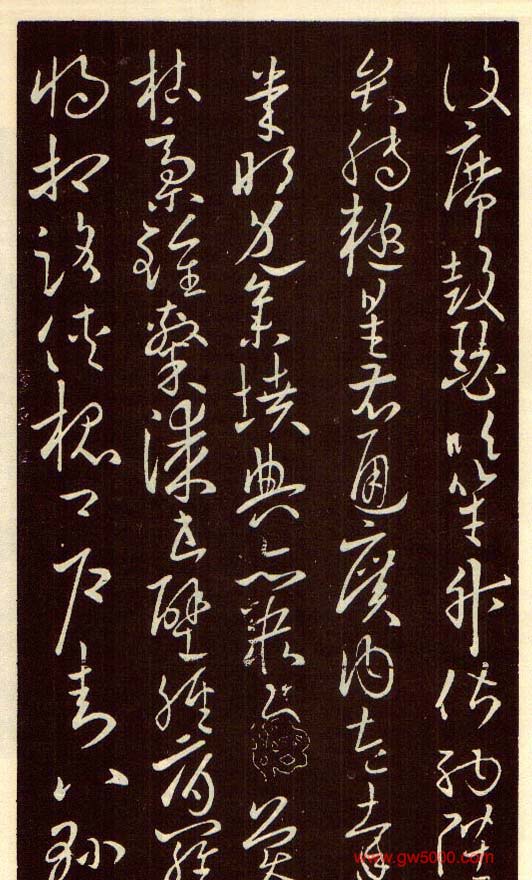 設席鼓瑟吹笙升階納陛
弁轉疑星右通廣內左達
承明既集墳典亦聚英
杜稾鍾隸漆書壁經府羅
將相路俠槐卿戶封八縣
www.gw5000.com